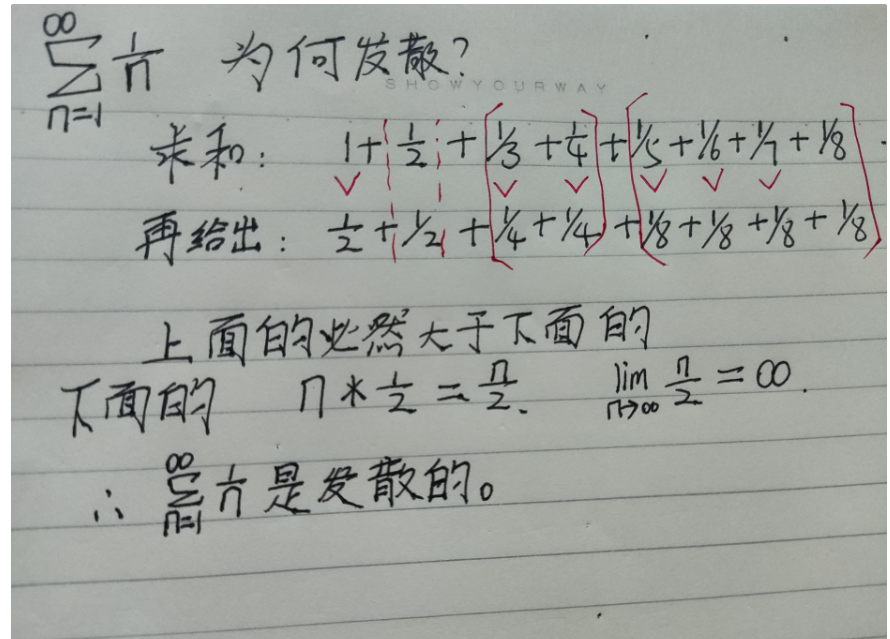 ∞
∑ 1/n 为何发散?
n=1
SHOWYOURWAY
求和: 1 + 1/2 + (1/3 + 1/4) + (1/5 + 1/6 + 1/7 + 1/8) .
∨ ∨ ∨ ∨ ∨ ∨
再给出: 1/2 + 1/2 + (1/4 + 1/4) + (1/8 + 1/8 + 1/8 + 1/8)
上面的必然大于下面的
下面的 n * 1/2 = n/2. lim n→∞ n/2 = ∞.
∴ ∞∑n=1 1/n 是发散的。